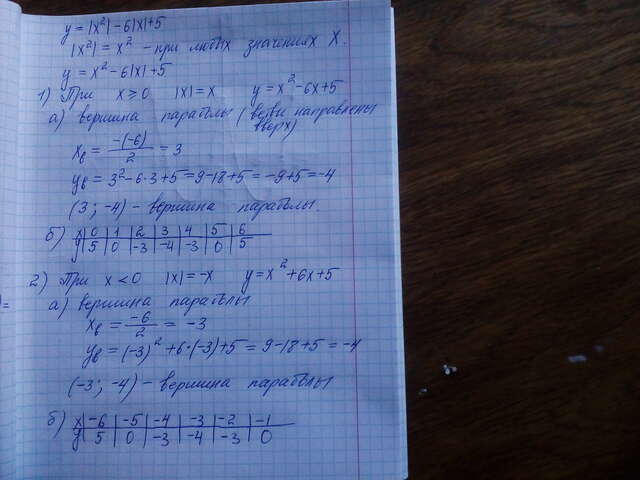 y = |x²| - 6|x| + 5
|x²| = x² - при любых значениях x.
y = x² - 6|x| + 5
1) При x ≥ 0 |x| = x y = x² - 6x + 5
а) вершина параболы (ветви направлены вверх)
xв = -(-6)/2 = 3
yв = 3² - 6·3 + 5 = 9 - 18 + 5 = -9 + 5 = -4
(3; -4) - вершина параболы.
б) x | 0 | 1 | 2 | 3 | 4 | 5 | 6
y | 5 | 0 | -3 | -4 | -3 | 0 | 5
2) При x < 0 |x| = -x y = x² + 6x + 5
а) вершина параболы
xв = -6/2 = -3
yв = (-3)² + 6·(-3) + 5 = 9 - 18 + 5 = -4
(-3; -4) - вершина параболы
б) x | -6 | -5 | -4 | -3 | -2 | -1
y | 5 | 0 | -3 | -4 | -3 | 0